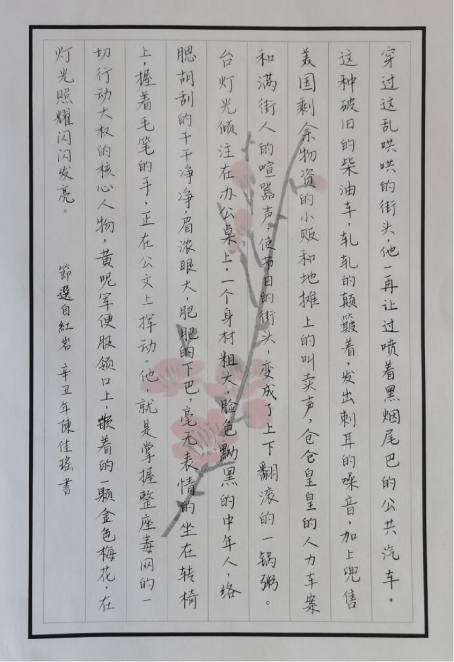 穿过这乱哄哄的街头，他一再让过喷着黑烟尾巴的公共汽车。
这种破旧的柴油车，轧轧的颠簸着，发出刺耳的噪音，加上兜售
美国剩余物资的小贩和地摊上的叫卖声，仓仓皇皇的人力车案
和满街人的喧嚣声。使节日的街头，变成了上下翻滚的一锅粥。
台灯光倾注在办公桌上，一个身材粗大，脸色黝黑的中年人，络
腮胡刮的干干净净，眉浓眼大，肥肥的下巴，毫无表情的坐在转椅
上，握着毛笔的手，正在公文上挥动。他，就是掌握整座毒网的一
切行动大权的核心人物，黄呢军便服领口上，嵌着的一颗金色梅花，在
灯光照耀闪闪发亮。 節選自紅岩 辛丑年陳佳瑤書